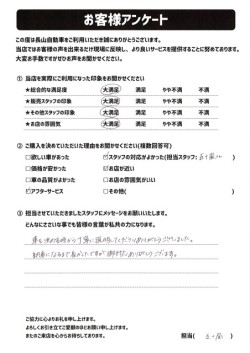 お客様アンケート
この度は長山自動車をご利用いただき誠にありがとうございます。
当店ではお客様の声を出来るだけ現場に反映し、より良いサービスを提供することに努めております。
大変お手数ですがぜひお声をお聞かせください。
① 当店を実際にご利用になった印象をお聞かせください
★総合的な満足度 大満足 満足 やや不満 不満
★販売スタッフの印象 大満足 満足 やや不満 不満
★その他スタッフの印象 大満足 満足 やや不満 不満
★お店の雰囲気 大満足 満足 やや不満 不満
② ご購入を決めていただいた理由をお聞かせください(複数回答可)
□欲しい車があった ☑スタッフの対応がよかった(担当スタッフ: )
□価格が安かった ☑お店が近い
□車の品質がよかった □お店の雰囲気がいい
☑アフターサービス □その他( )
③ 担当させていただきましたスタッフにメッセージをお願いいたします。
どんなにささいな事でも皆様の言葉が私共の力になります。
ありがとうございました。
ありがとうございます。
ご協力に心よりお礼を申し上げます。
よろしくお引き立てご愛顧のほどお願い申し上げます。
またのご来店を心からお待ちしております。
担当( )